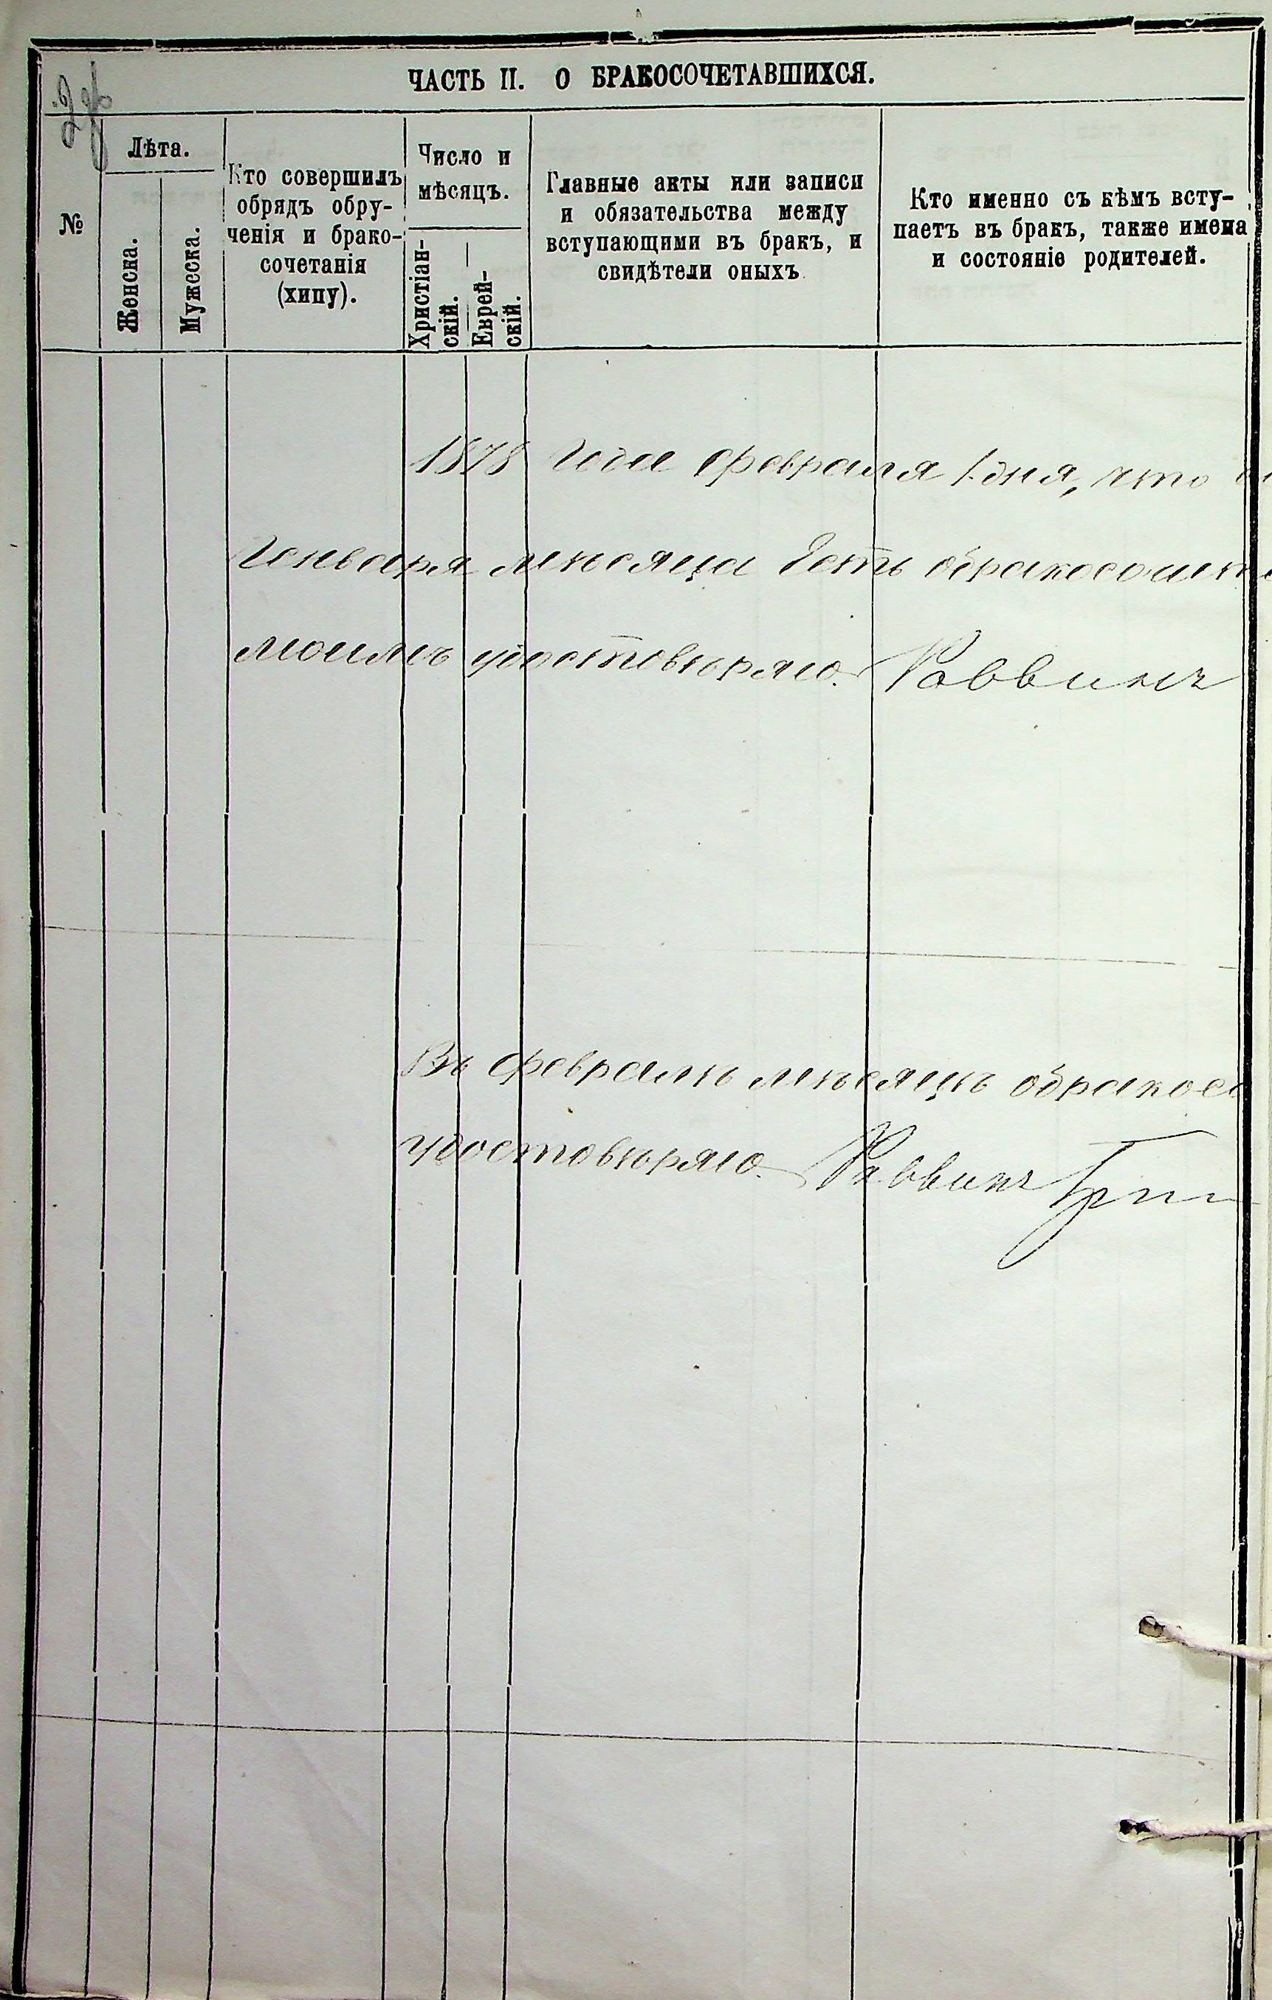 ЧАСТЬ II. О БРАКОСОЧЕТАВШИХСЯ.
№
Лѣта.
Женска.
Мужеска.
Кто совершилъ
обрядъ обру-
ченія и брако-
сочетанія
(хипу).
Число и
мѣсяцъ.
Христіан-
скій.
Еврей-
скій.
Главные акты или записи
и обязательства между
вступающими въ бракъ, и
свидѣтели оныхъ
Кто именно съ кѣмъ всту-
паетъ въ бракъ, также имена
и состояніе родителей.
1878 года февраля 1 дня, что
Генваря мѣсяца
моимъ удостовѣряю. Раввинъ
Въ февралѣ мѣсяцѣ обракосо
удостовѣряю. Раввинъ